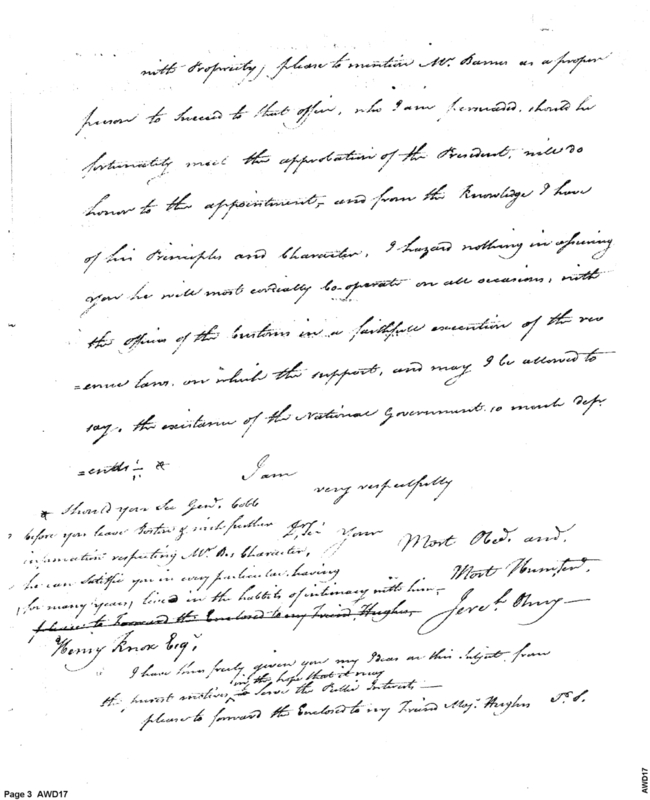 with Propriety, please to mention Mr. Barnes as a proper
person to Succeed to that office, who I am persuaded, should he
fortunately meet the approbation of the President, will do
honor to the appointment, and from the Knowledge I have
of his Principles and Character, I hazard nothing in assuring
you he will most cordially Co-operate on all occasions, with
the officers of the Customs in a faithfull execution of the rev
=enue laws, on which the support, and may I be allowed to
say, the existance of the National Government so much dep
=ends. *
I am
very respectfully
* Should you See Genl. Cobb
before you leave Boston & wish further
information respecting Mr. Bs Character,
he can Satisfie you in every particular having
for many years, lived in the habits of intimacy with him,
please to forward the Enclosed to my Friend Hughes,
Your
Most Obed. and
Most Humser.
Jereh.
Henry Knox Esqr.
I have thus freely given you my Ideas on this Subject from
in the hope that it may
the purest motives, to Serve the Public Interests
please to forward the Enclosed to my Friend Majr. Hughes
Page 3 AWD17
AWD17